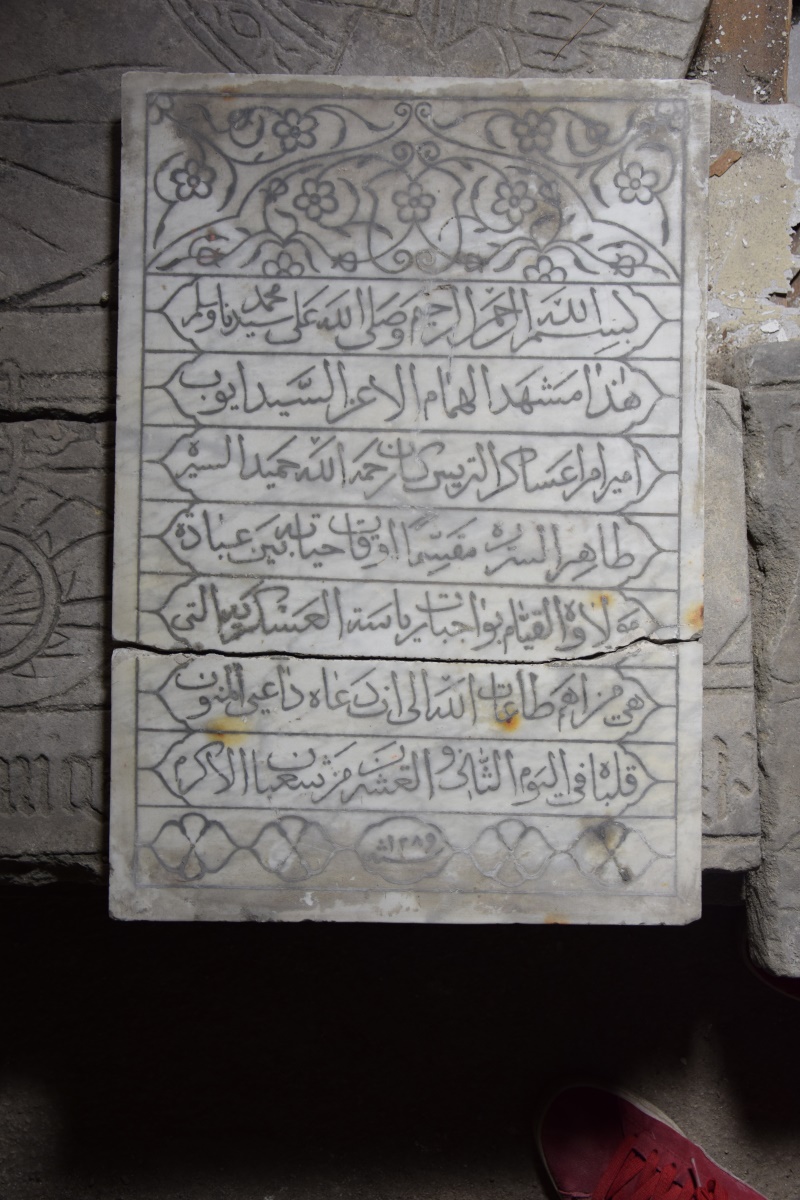 بسم الله الرحمن الرحيم وصلى الله على سيدنا محمد وسلم
هذا مشهد الهمام الاعز السيد ايوب
امير امراء عساكر التريس كان رحمه الله حميد السيرة
طاهر السره مقسما اوقات حياته بين عبادة
مولاه والقيام بواجبات رياسة العسكريه التي
هي من اهم طاعات الله الى ان دعاه داعي المنون
فلباه في اليوم الثاني والعشرين من شعبان الاكرم
سنة ١٢٨٩